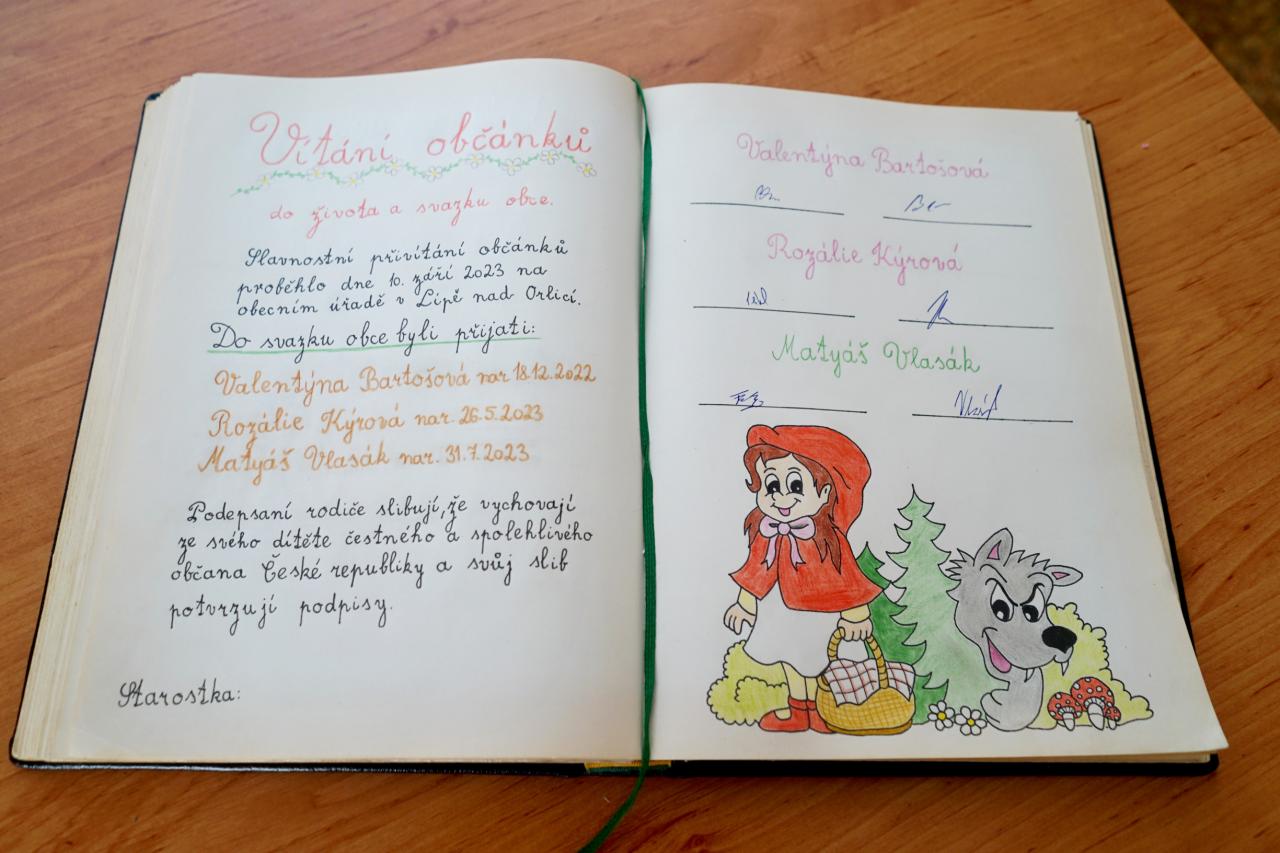 Vítání občánků
do života a svazku obce.
Slavnostní přivítání občánků
proběhlo dne 10. září 2023 na
obecním úřadě v Lípě nad Orlicí.
Do svazku obce byli přijati:
Valentýna Bartošová nar 18.12.2022
Rozálie Kýrová nar. 26.5.2023
Matyáš Vlasák nar. 31.7.2023
Podepsaní rodiče slibují, že vychovají
ze svého dítěte čestného a spolehlivého
občana České republiky a svůj slib
potvrzují podpisy.
Starostka:
Valentýna Bartošová
Rozálie Kýrová
Matyáš Vlasák